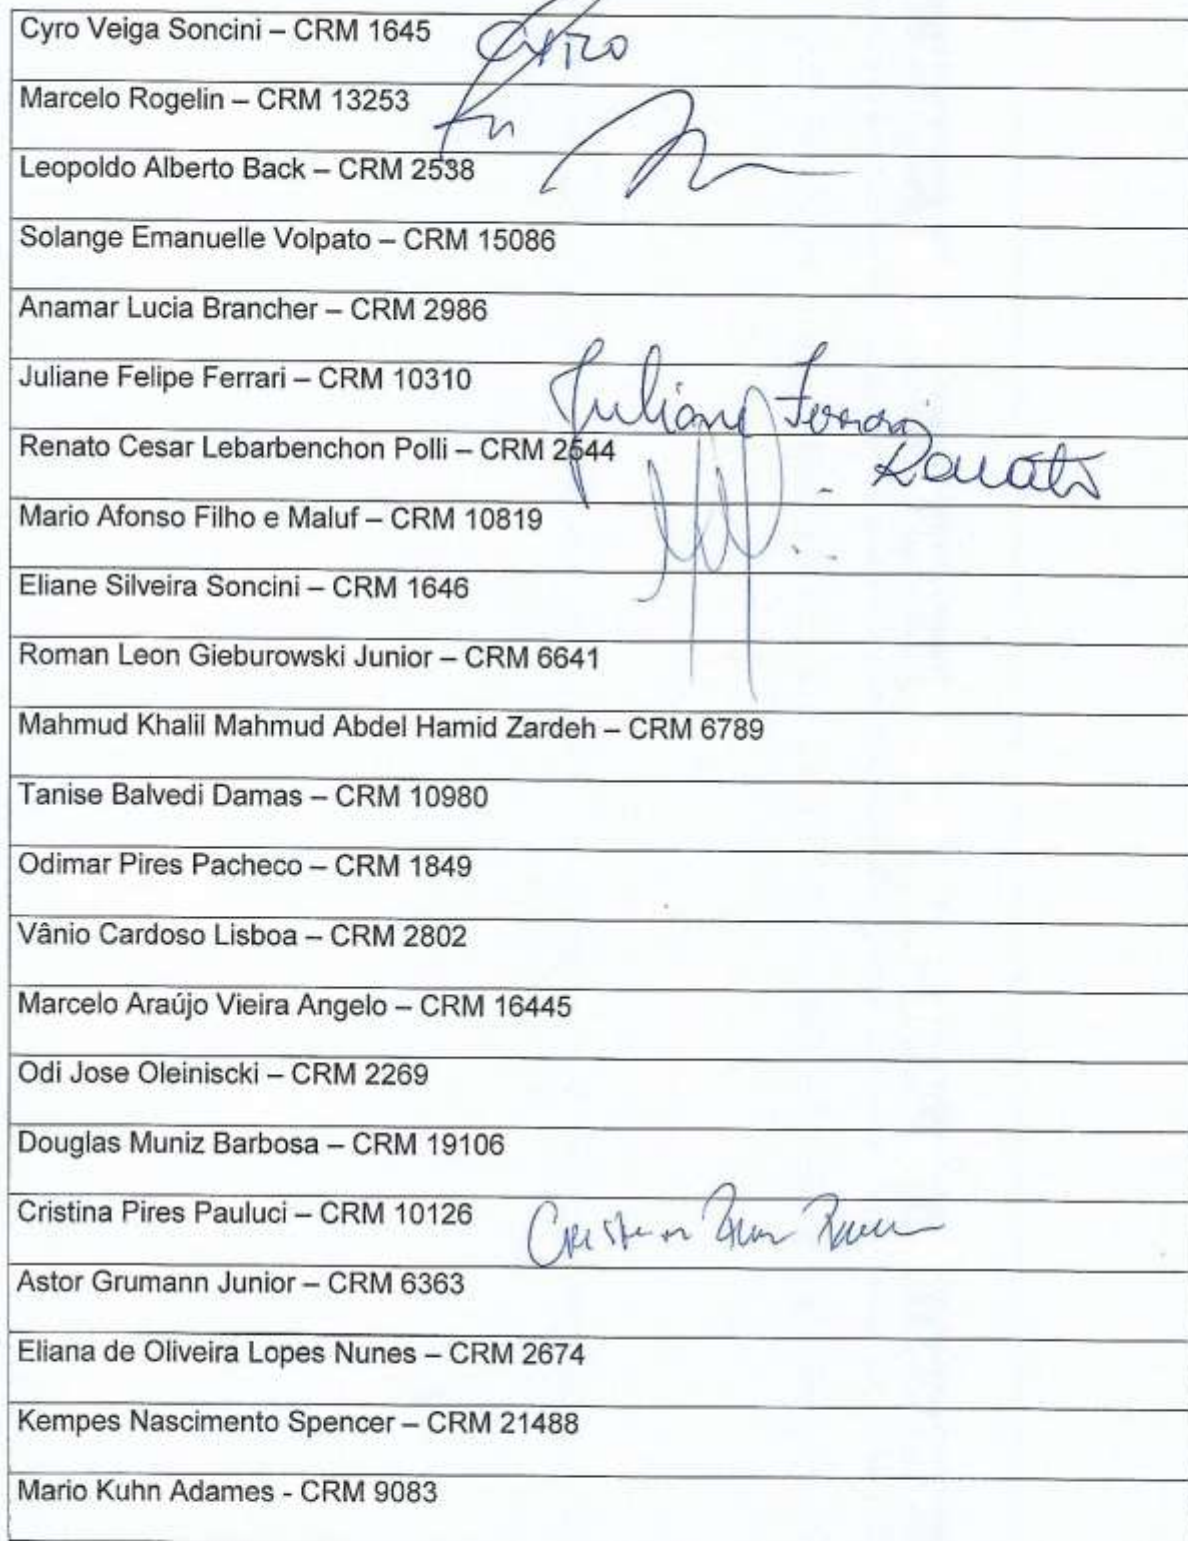 Cyro Veiga Soncini – CRM 1645
Marcelo Rogelin – CRM 13253
Leopoldo Alberto Back – CRM 2538
Solange Emanuelle Volpato – CRM 15086
Anamar Lucia Brancher – CRM 2986
Juliane Felipe Ferrari – CRM 10310
Juliane Ferrari
Renato Cesar Lebarbenchon Polli – CRM 2544
Renato
Mario Afonso Filho e Maluf – CRM 10819
Eliane Silveira Soncini – CRM 1646
Roman Leon Gieburowski Junior – CRM 6641
Mahmud Khalil Mahmud Abdel Hamid Zardeh – CRM 6789
Tanise Balvedi Damas – CRM 10980
Odimar Pires Pacheco – CRM 1849
Vânio Cardoso Lisboa – CRM 2802
Marcelo Araújo Vieira Angelo – CRM 16445
Odi Jose Oleiniscki – CRM 2269
Douglas Muniz Barbosa – CRM 19106
Cristina Pires Pauluci – CRM 10126
Astor Grumann Junior – CRM 6363
Eliana de Oliveira Lopes Nunes – CRM 2674
Kempes Nascimento Spencer – CRM 21488
Mario Kuhn Adames - CRM 9083